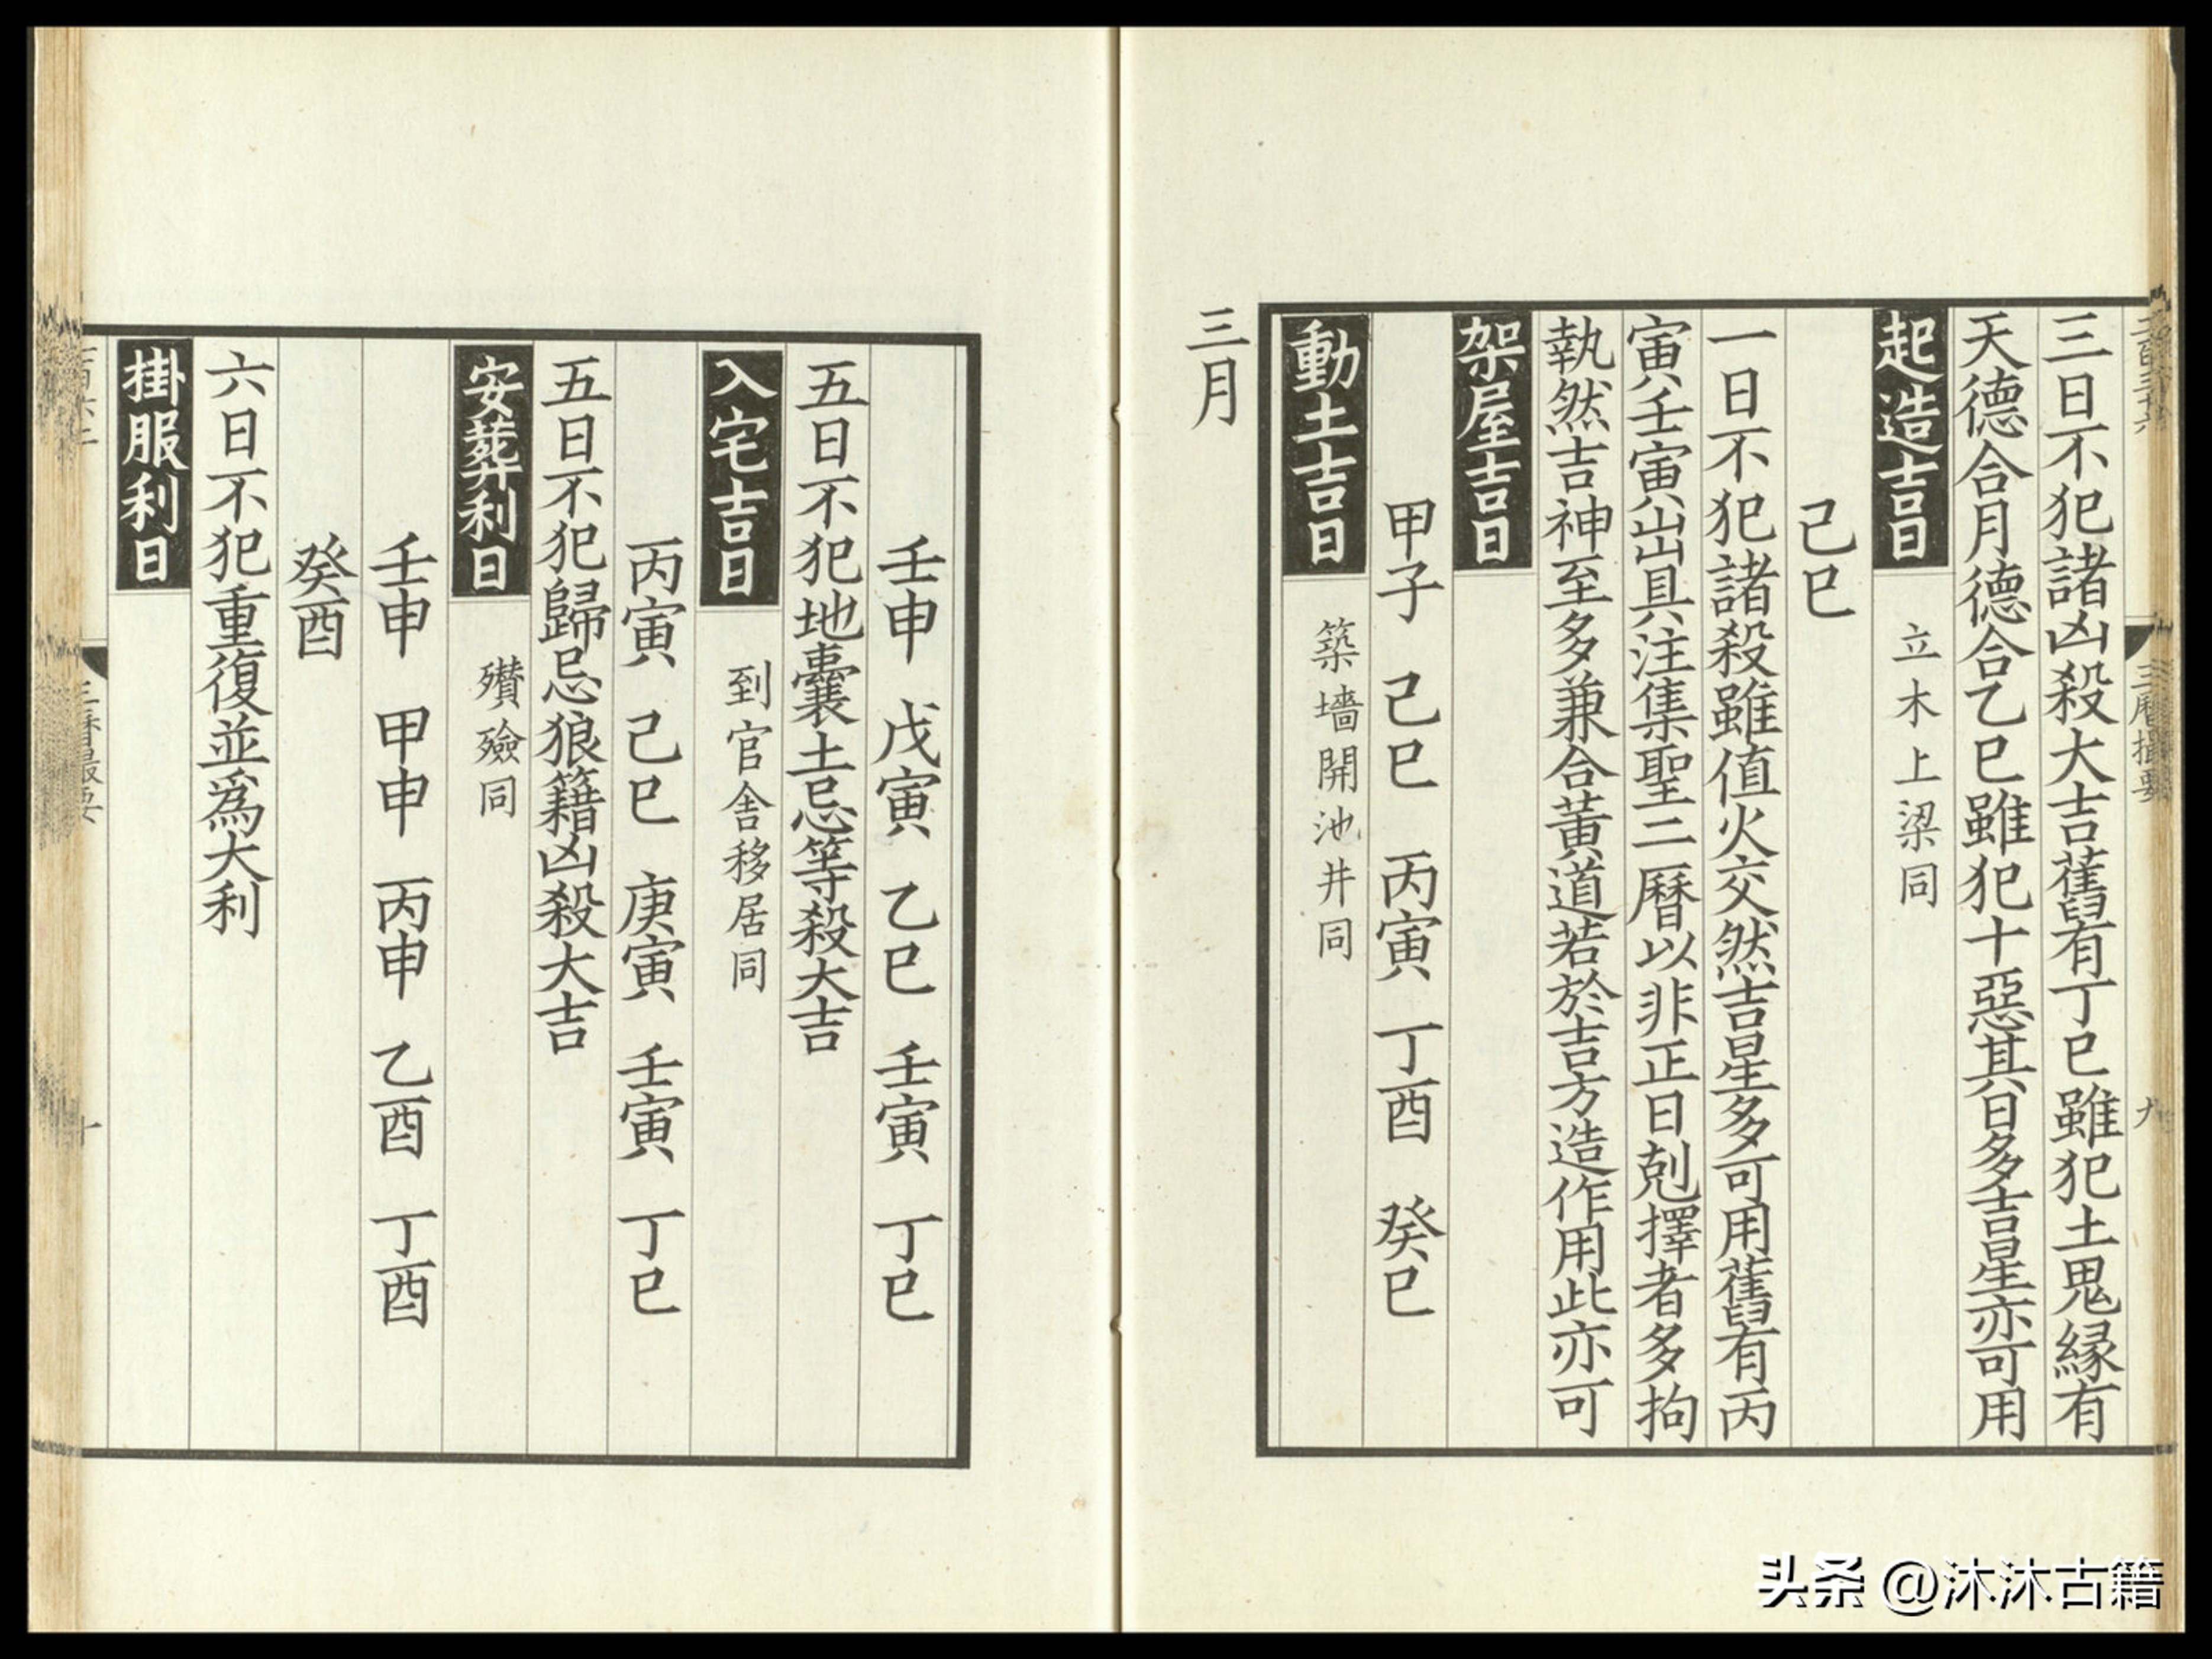 三日不犯諸凶殺大吉舊有丁巳雖犯土鬼縁有
天德合月德合乙巳雖犯十惡其日多吉星亦可用
起造吉日 立木上梁同
己巳
一日不犯諸殺雖值火交然吉星多可用舊有丙
寅壬寅㞮具注集聖二曆以非正日剋擇者多拘
執然吉神至多兼合黃道若於吉方造作用此亦可
架屋吉日
甲子 己巳 丙寅 丁酉 癸巳
動土吉日 築墻開池井同
三月
壬申 戊寅 乙巳 壬寅 丁巳
五日不犯地囊土忌等殺大吉
入宅吉日 到官舍移居同
丙寅 己巳 庚寅 壬寅 丁巳
五日不犯歸忌狼籍凶殺大吉
安葬利日 殯殮同
壬申 甲申 丙申 乙酉 丁酉
癸酉
六日不犯重復並爲大利
掛服利日
头条 @沐沐古籍